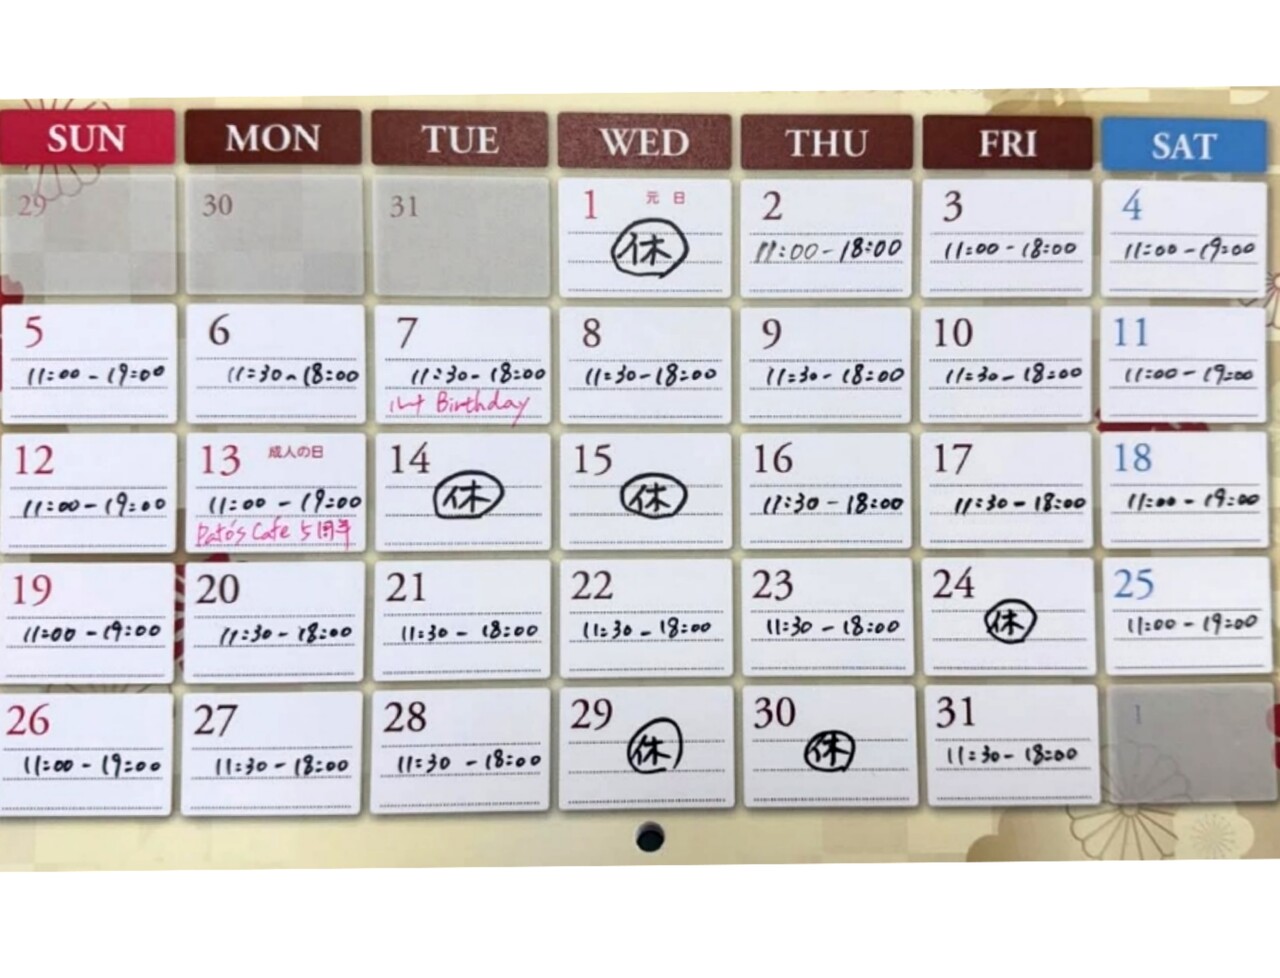 SUN MON TUE WED THU FRI SAT
29 30 31 1 元日 2 3 4
休 11:00-18:00 11:00-18:00 11:00-19:00
5 6 7 8 9 10 11
11:00-19:00 11:30-18:00 11:30-18:00 11:30-18:00 11:30-18:00 11:30-18:00 11:00-19:00
Birthday
12 13 成人の日 14 15 16 17 18
11:00-19:00 11:00-19:00 休 休 11:30-18:00 11:30-18:00 11:00-19:00
Pato's Cafe 5周年
19 20 21 22 23 24 25
11:00-19:00 11:30-18:00 11:30-18:00 11:30-18:00 11:30-18:00 休 11:00-19:00
26 27 28 29 30 31 1
11:00-19:00 11:30-18:00 11:30-18:00 休 休 11:30-18:00